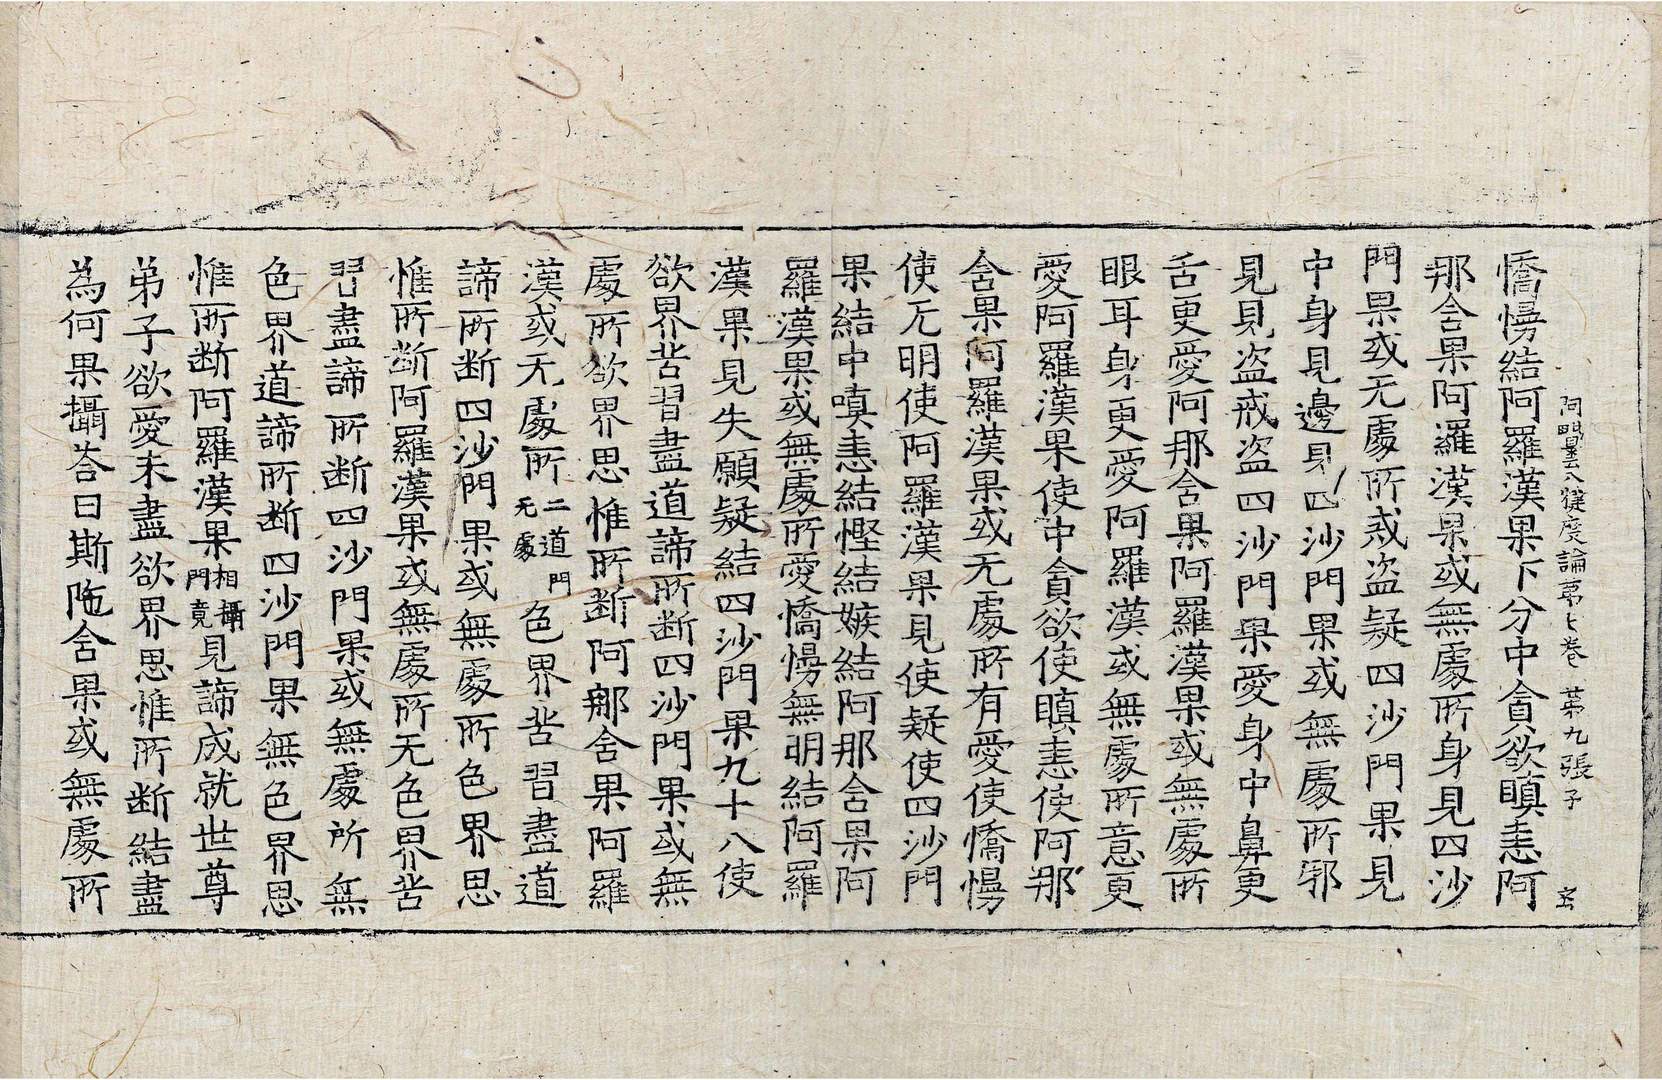 阿毗曇八犍度論第七卷　第九張　子
憍慢結阿羅漢果下分中貪欲瞋恚阿
那含果阿羅漢果或無處所身見四沙
門果或无處所戒盜疑四沙門果見
中身見邊見四沙門果或無處所邪
見見盜戒盜四沙門果愛身中鼻更
舌更愛阿那含果阿羅漢果或無處所
眼耳身更愛阿羅漢或無處所意更
愛阿羅漢果使中貪欲使瞋恚使阿那
含果阿羅漢果或无處所有愛使憍慢
使无明使阿羅漢果見使疑使四沙門
果結中嗔恚結慳結嫉結阿那含果阿
羅漢果或無處所愛憍慢無明結阿羅
漢果見失願疑結四沙門果九十八使
欲界苦習盡道諦所断四沙門果或無
處所欲界思惟所断阿那含果阿羅
漢或无處所二道門无處色界苦習盡道
諦所断四沙門果或無處所色界思
惟所断阿羅漢果或無處所无色界苦
習盡諦所断四沙門果或無處所無
色界道諦所断四沙門果無色界思
惟所断阿羅漢果相攝門竟見諦成就世尊
弟子欲愛未盡欲界思惟所断結盡
為何果攝荅曰斯陁含果或無處所